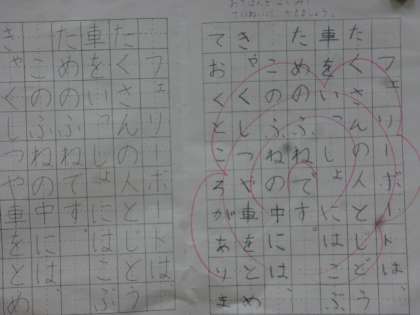 フェリーボートは、
たくさんの人とじどう
車をいっしょにはこぶ
ためのふねです。
このふねの中には、
きゃくしつや車をとめ
ておくところがありま
フェリーボートは
たくさんの人とじどう
車をいっしょにはこぶ
ためのふねです
このふねの中には
きゃくしつや車をとめ